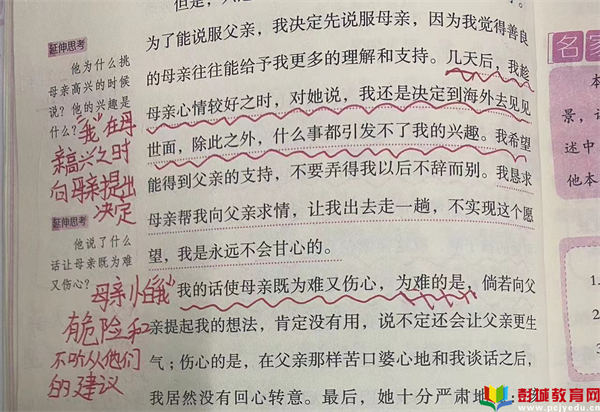 为了能说服父亲，我决定先说服母亲，因为我觉得善良
的母亲往往能给予我更多的理解和支持。几天后，我趁
母亲心情较好之时，对她说，我还是决定到海外去见见
世面，除此之外，什么事都引发不了我的兴趣。我希望
能得到父亲的支持，不要弄得我以后不辞而别。我恳求
母亲帮我向父亲求情，让我出去走一趟，不实现这个愿
望，我是永远不会甘心的。
我的话使母亲既为难又伤心，为难的是，倘若向父
亲提起我的想法，肯定没有用，说不定还会让父亲更生
气；伤心的是，在父亲那样苦口婆心地和我谈话之后，
我居然没有回心转意。最后，她十分严肃地
延伸思考
他为什么挑
母亲高兴的时候
说？他的兴趣是
什么？
"我"在母
亲高兴之时
向母亲提出
决定
延伸思考
他说了什么
话让母亲既为难
又伤心？
母亲
"我"
有危险和
不听从他们
的建议
名家
本
景，
述中
他本
1.
2.
3.
彭城教育网
www.pcjyedu.cn